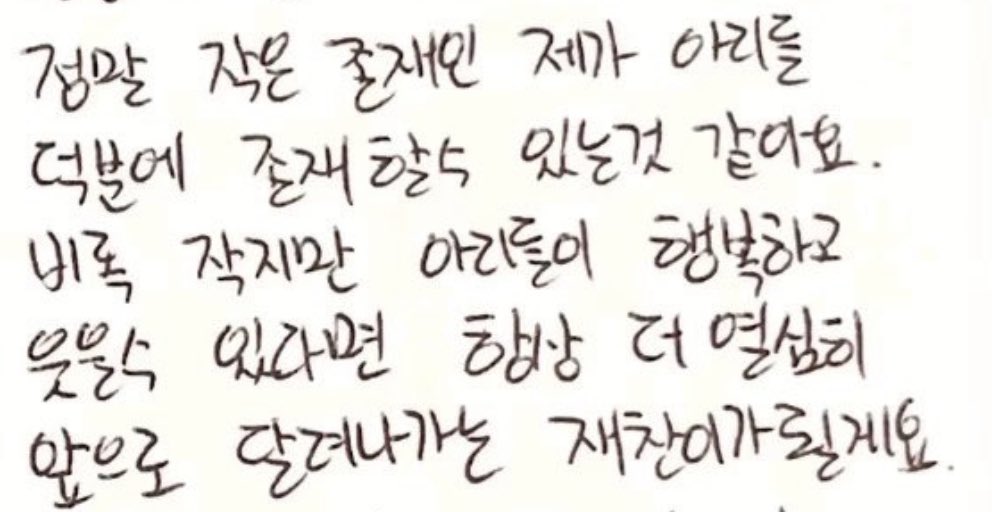 정말 작은 존재인 제가 아리들
덕분에 존재 할수 있는것 같아요.
비록 작지만 아리들이 행복하고
웃을수 있다면 항상 더 열심히
앞으로 달려나가는 재찬이가 될게요.